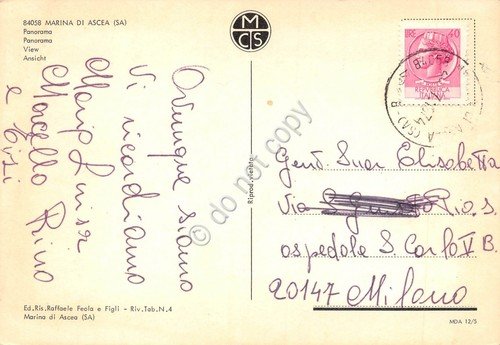 84058 MARINA DI ASCEA (SA)
Panorama
Panorama
View
Ansicht
M
C S
LIRE 40
Ovunque siamo
Vi ricordiamo
Maria Luisa
Marcello Rino
e
Riprod. vietata
Gent. Suor Elisabetta
Via
Ospedale S Carlo V B.
20147 Milano
Ed. Ris. Raffaele Feola e Figli - Riv. Tab. N. 4
Marina di Ascea (SA)
MDA 12/5
© do not copy